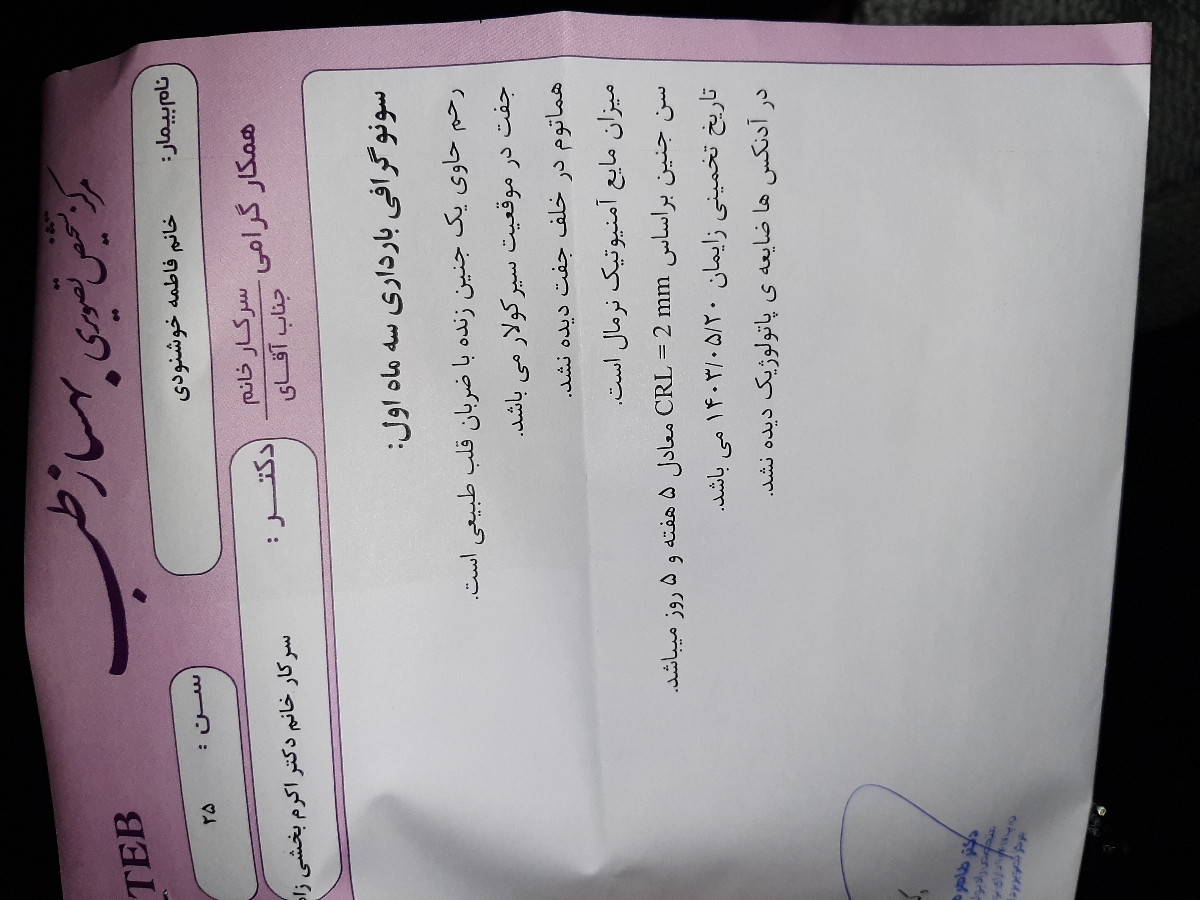 مرکز تشخیص تصویری
بهساز طب
TEB
نام بیمار: خانم فاطمه خوشنودی
سن : ۲۵
همکار گرامی سرکار خانم
جناب آقای
دکتر : سرکار خانم دکتر اکرم بخشی زاد
سونوگرافی بارداری سه ماه اول:
رحم حاوی یک جنین زنده با ضربان قلب طبیعی است.
جفت در موقعیت سیرکولار می باشد.
هماتوم در خلف جفت دیده نشد.
میزان مایع آمنیوتیک نرمال است.
سن جنین براساس CRL = 2 mm معادل ۵ هفته و ۵ روز میباشد.
تاریخ تخمینی زایمان ۱۴۰۳/۰۵/۲۰ می باشد.
در آدنکس ها ضایعه ی پاتولوژیک دیده نشد.
دکتر